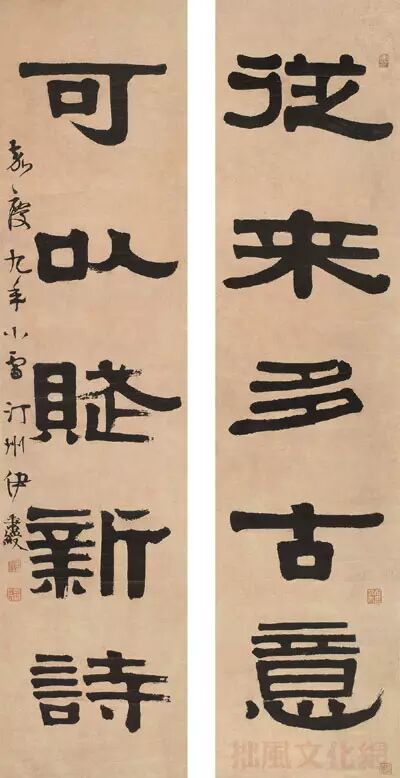 從来多古意
可以賦新詩
嘉慶九年小雪汀州伊秉綬
拙風文化網